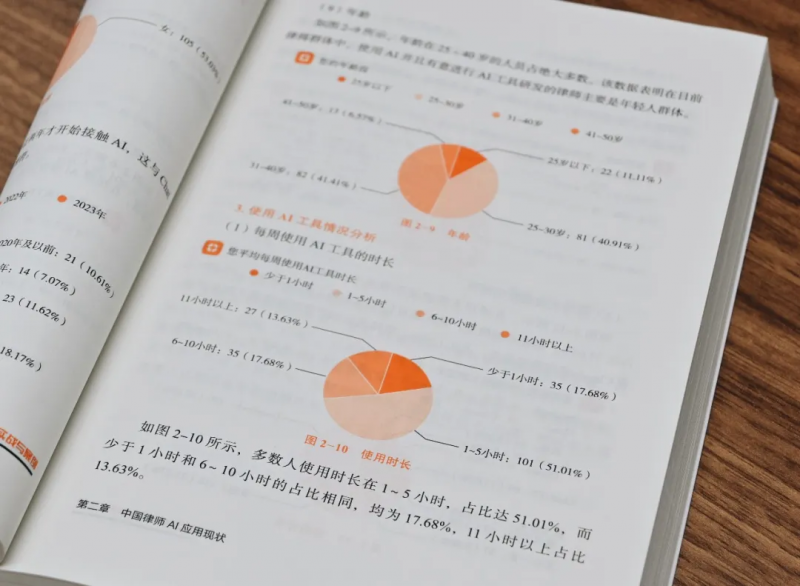 女：105（53.03%）
年才开始接触 AI，这与
2022年
2023年
2020年及以前：21（10.61%）
年：14（7.07%）
23（11.62%）
18.17%）
实战与
年龄
如图 2-9 所示，年龄在 25～40 岁的人员占绝大多数，该数据表明在目前
律师群体中，使用 AI 并且有意进行 AI 工具研发的律师主要是年轻人群体。
您的年龄段
25岁以下
25~30岁
31~40岁
41~50岁
41~50岁：13（6.57%）
25岁以下：22（11.11%）
31~40岁：82（41.41%）
25~30岁：81（40.91%）
图 2-9 年龄
3. 使用 AI 工具情况分析
（1）每周使用 AI 工具的时长
您平均每周使用AI工具时长
少于1小时
1~5小时
6~10小时
11小时以上
11小时以上：27（13.63%）
少于1小时：35（17.68%）
6~10小时：35（17.68%）
1~5小时：101（51.01%）
图 2-10 使用时长
如图 2-10 所示，多数人使用时长在 1~5 小时，占比达 51.01%，而
少于 1 小时和 6~10 小时的占比相同，均为 17.68%，11 小时以上占比
13.63%。
第二章 中国律师 AI 应用现状